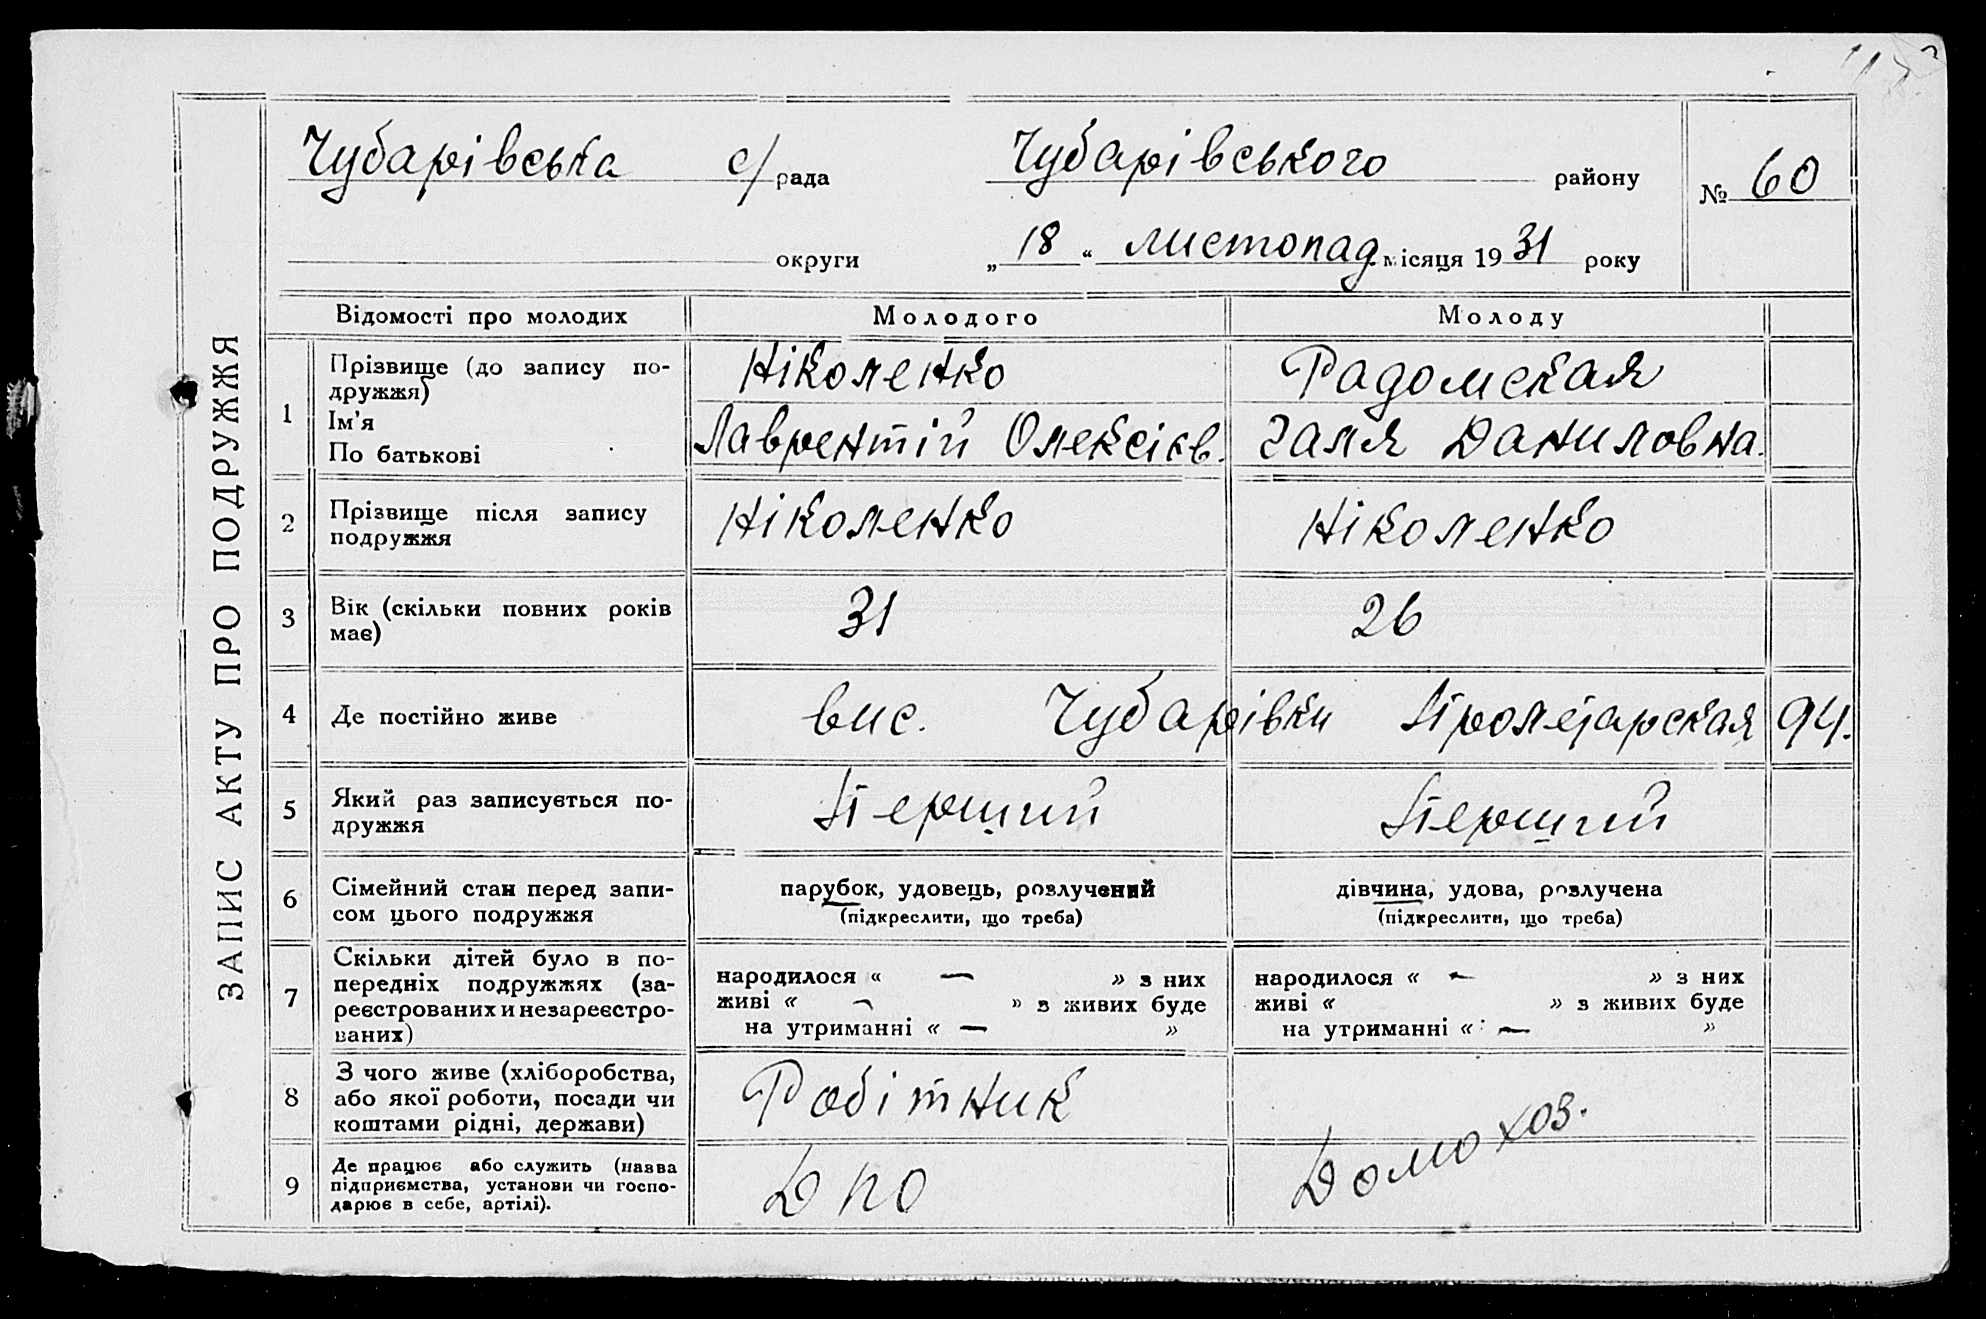 ЗАПИС АКТУ ПРО ПОДРУЖЖЯ
Чубарівська с/рада Чубарівського району № 60
округи „18“ листопад місяця 1931 року
Відомості про молодих Молодого Молоду
1 Прізвище (до запису по-
дружжя) Ніколенко Радомская
Ім'я
По батькові Лаврентій Олексієв. Галя Даниловна.
2 Прізвище після запису
подружжя Ніколенко Ніколенко
3 Вік (скільки повних років
має) 31 26
4 Де постійно живе вис. Чубарівки Пролетарская 94.
5 Який раз записується по-
дружжя Перший Перший
6 Сімейний стан перед запи-
сом цього подружжя
парубок, удовець, розлучений
(підкреслити, що треба)
дівчина, удова, розлучена
(підкреслити, що треба)
7 Скільки дітей було в по-
передніх подружжях (за-
реєстрованих и незареєстро-
ваних)
народилося « — » з них
живі « — » з живих буде
на утриманні « — »
народилося « — » з них
живі « » з живих буде
на утриманні « — »
8 З чого живе (хліборобства,
або якої роботи, посади чи
коштами рідні, держави) Робітник Домохоз.
9 Де працює або служить (назва
підприємства, установи чи госпо-
дарює в себе, артілі). Дпо